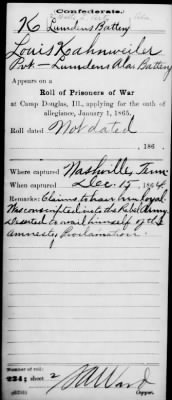 Confederate.
K Lumdens Battery
Louis Kahnweiler
Pvt — Lumdens Alas Battery
Appears on a
Roll of Prisoners of War
at Camp Douglas, Ill., applying for the oath of
allegiance, January 1, 1865.
Roll dated Not dated
, 186 .
Where captured Nashville, Tenn
When captured Dec 15, 1864.
Remarks: Claims to have been loyal
Was conscripted into the Rebel Army.
Deserted to avail himself of the
Amnesty Proclamation.
Number of roll:
234; sheet 2
Ward
Copyist.